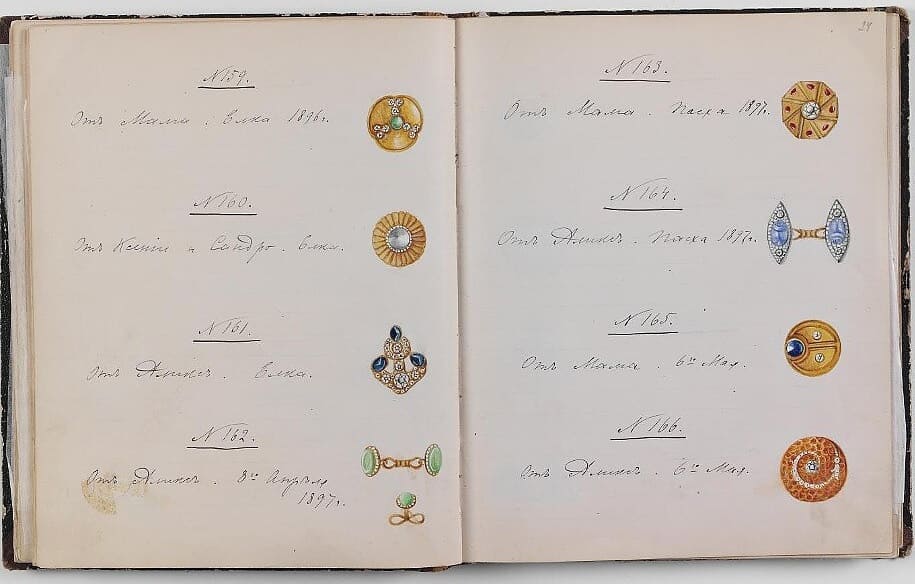 N 159.
Отъ Мама. Елка 1896г.
N 160.
Отъ Ксеніи и Сандро. Елка.
N 161.
Отъ Аликсъ. Елка.
N 162.
Отъ Аликсъ. 8го Апрѣля
1897г.
24
N 163.
Отъ Мама. Пасха 1897г.
N 164.
Отъ Аликсъ. Пасха 1897г.
N 165.
Отъ Мама. 6го Мая.
N 166.
Отъ Аликсъ. 6го Мая.